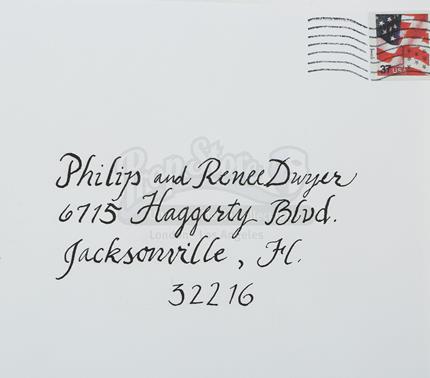 37 USA
Philip and Renee Dwyer
6715 Haggerty Blvd.
Jacksonville, Fl.
32216
Prop Store
London Los Angeles